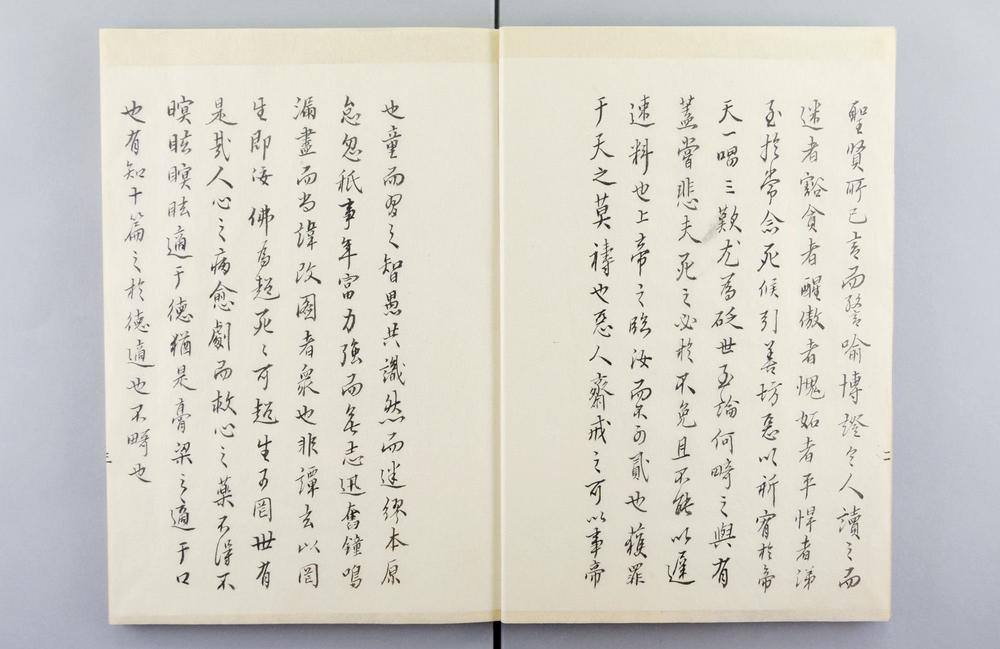 聖賢所已言而警喻博證令人讀之而
迷者豁貪者醒傲者愧妬者平悍者涕
至於常念死候引善坊惡以祈宥於帝
天一唱三歎尤為砭世至論何畸之與有
蓋嘗悲夫死之必於不免且不能以遲
速料也上帝之臨汝而不可貳也獲罪
于天之莫禱也惡人齋戒之可以事帝
也童而習之智愚共識然而迷繆本原
怠忽秪事年富力強而無志迅奮鐘鳴
漏盡而尚諱改圖者眾也非譚玄以罔
生即佞佛為超死死可超生可罔世有
是哉人心之病愈劇而救心之藥不得不
瞑眩瞑眩適于德猶是膏粱之適于口
也有知十篇之於德適也不畸也
二
三